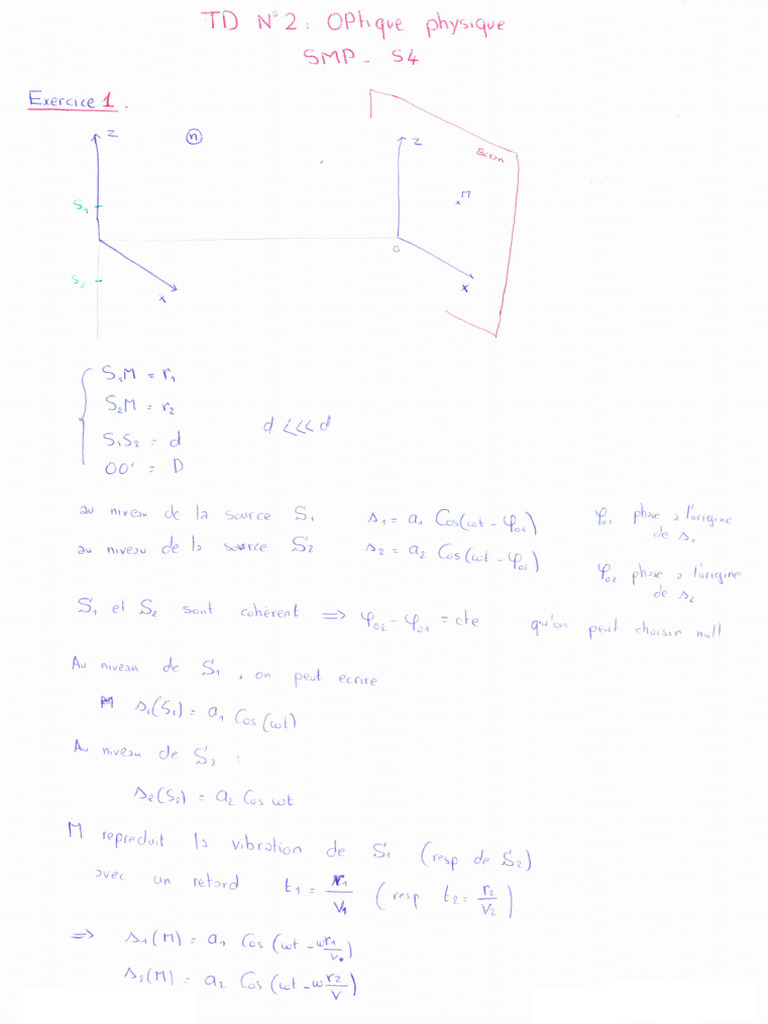 TD N°2 : OPtique physique
SMP - S4
Exercice 1 .
Z
n
Z
Ecran
S₁
M
O
S₂
X
X
S₁M = r₁
S₂M = r₂
S₁S₂ = d
d <<< d
OO' = D
au niveau de la source S₁ s₁ = a₁ Cos(ωt - φ₀₁) φ₀₁ phase a l'origine
de s₁
au niveau de la source S₂ s₂ = a₂ Cos(ωt - φ₀₂)
φ₀₂ phase a l'origine
de s₂
S₁ et S₂ sont cohérent ⟹ φ₀₂ - φ₀₁ = cte qu'on peut choisir null
Au niveau de S₁ , on peut ecrire
M s₁(S₁) = a₁ Cos(ωt)
Au niveau de S₂ :
s₂(S₂) = a₂ Cos ωt
M repreduit la vibration de S₁ (resp de S₂)
avec un retard t₁ = r₁/V₁ (resp t₂ = r₂/V₂)
⟹ s₁(M) = a₁ Cos (ωt - ωr₁/v)
s₂(M) = a₂ Cos (ωt - ωr₂/v)